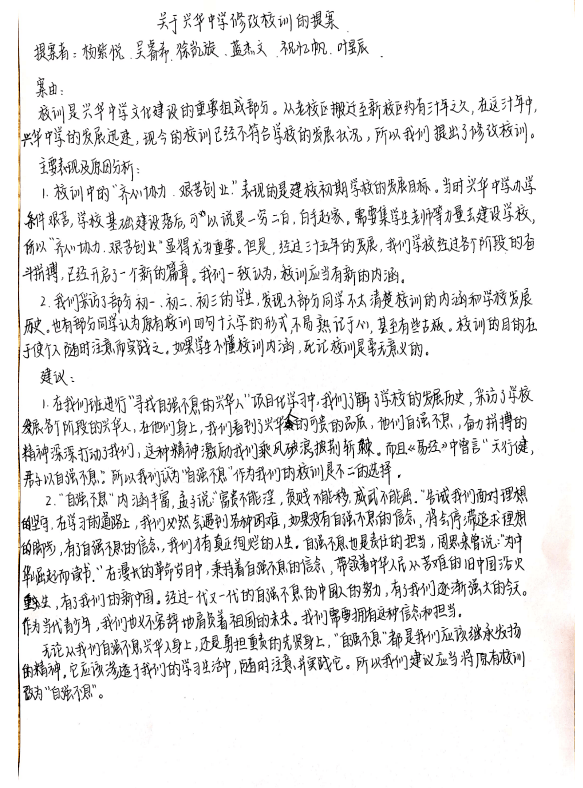 关于兴华中学修改校训的提案
提案者：杨紫悦、吴善希、徐凯旋、蓝杰文、祝忆帆、叶昱辰、
案由：
校训是兴华中学文化建设的重要组成部分。从老校区搬迁至新校区约有三十年之久，在这三十年中，
兴华中学的发展迅速，现今的校训已经不符合学校的发展状况，所以我们提出了修改校训。
主要表现及原因分析：
1. 校训中的“齐心协力、艰苦创业。”表现的是建校初期学校的发展目标。当时兴华中学办学
条件艰苦，学校基础建设落后，可以说是一穷二白，白手起家。需要集学生老师等力量去建设学校，
所以“齐心协力、艰苦创业”显得尤为重要。但是，经过三十五年的发展，我们学校经过各个阶段的奋
斗拼搏，已经开启了一个新的篇章。我们一致认为，校训应当有新的内涵。
2. 我们采访了部分初一、初二、初三的学生，发现大部分同学不太清楚校训的内涵和学校发展
历史。也有部分同学认为原有校训四句十六字的形式，不易熟记于心，甚至有些古板。校训的目的在
于使个人随时注意而实践之。如果学生不懂校训内涵，死记校训是毫无意义的。
建议：
1. 在我们班进行“寻找自强不息的兴华人”项目化学习中，我们了解了学校的发展历史，采访了学校
发展各个阶段的兴华人，在他们身上，我们看到了兴华人的可贵的品质，他们自强不息，奋力拼搏的
精神深深打动了我们，这种精神激励我们乘风破浪披荆斩棘。而且《易经》中曾言“天行健，
君子以自强不息。”所以我们认为“自强不息”作为我们的校训是不二的选择。
2. “自强不息”内涵丰富，孟子说：“富贵不能淫，贫贱不能移，威武不能屈。”告诫我们面对理想
的坚守。在学习的道路上，我们必然会遇到各种困难，如果没有自强不息的信念，将会停滞追求理想
的脚步，有了自强不息的信念，我们才有真正绚烂的人生。自强不息也是责任的担当，周恩来曾说：“为中
华崛起而读书。”在漫长的革命岁月中，秉持着自强不息的信念，带领着中华人民从苦难的旧中国浴火
重生，有了我们的新中国。经过一代又一代的自强不息的中国人的努力，有了我们逐渐强大的今天。
作为当代青少年，我们也义不容辞地肩负着祖国的未来。我们需要拥有这种信念和担当。
无论从我们自强不息兴华人身上，还是勇担重责的先贤身上，“自强不息”都是我们应该继承发扬
的精神。它应该渗透于我们的学习生活中，随时注意并实践它。所以我们建议应当将原有校训
改为“自强不息”。